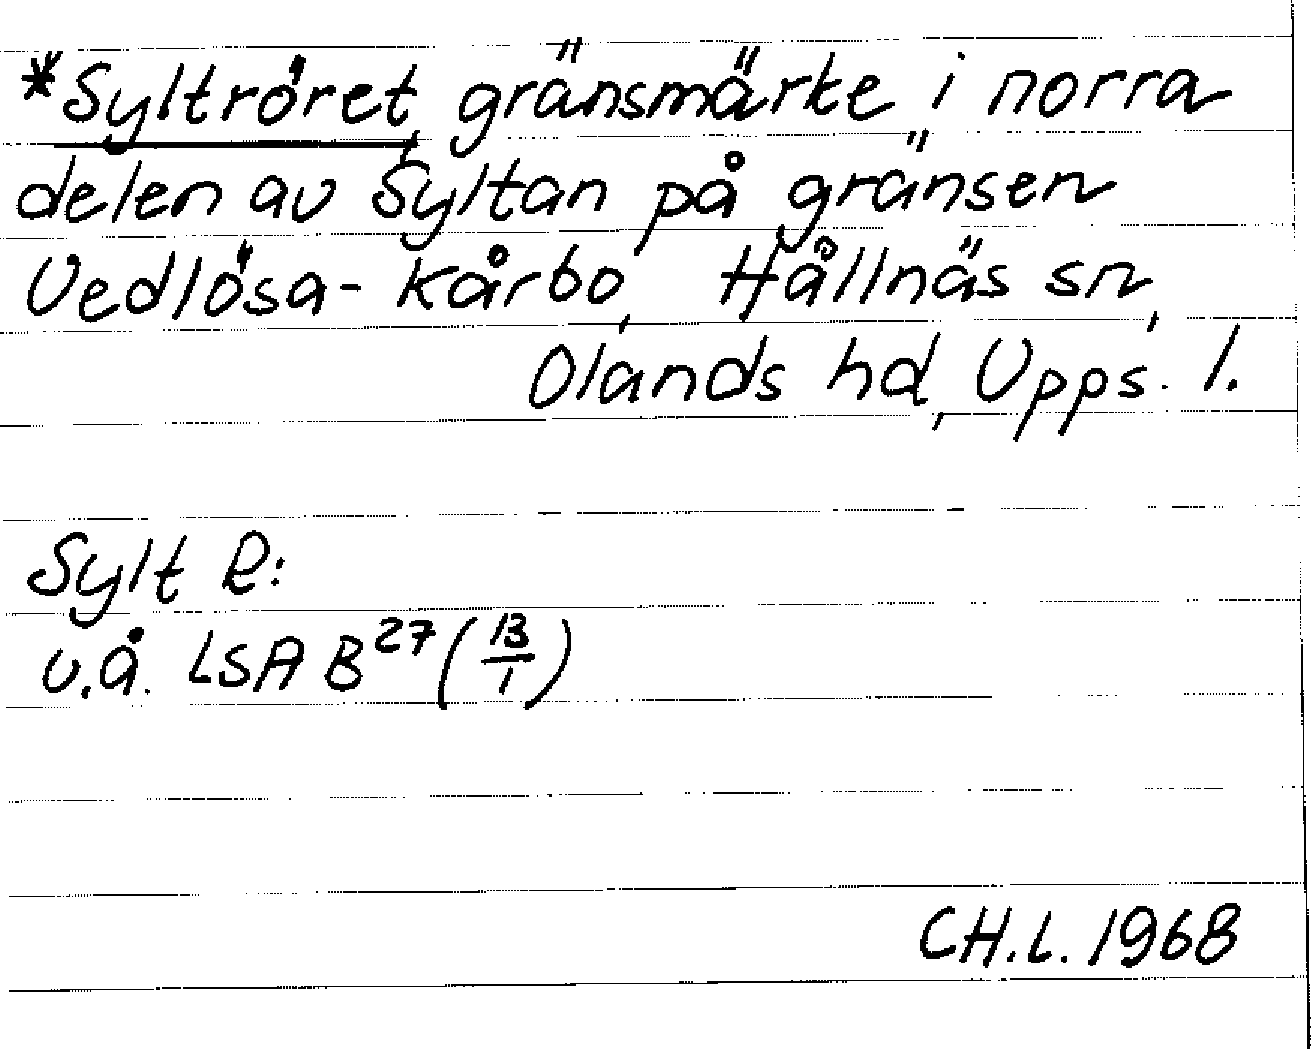 *Syltröret, gränsmärke i norra
delen av Syltan på gränsen
Vedlösa-Kårbo, Hållnäs sn,
Olands hd, Upps. l.
Sylt R:
u.å. LSA B²⁷ (13/1)
CH.L. 1968